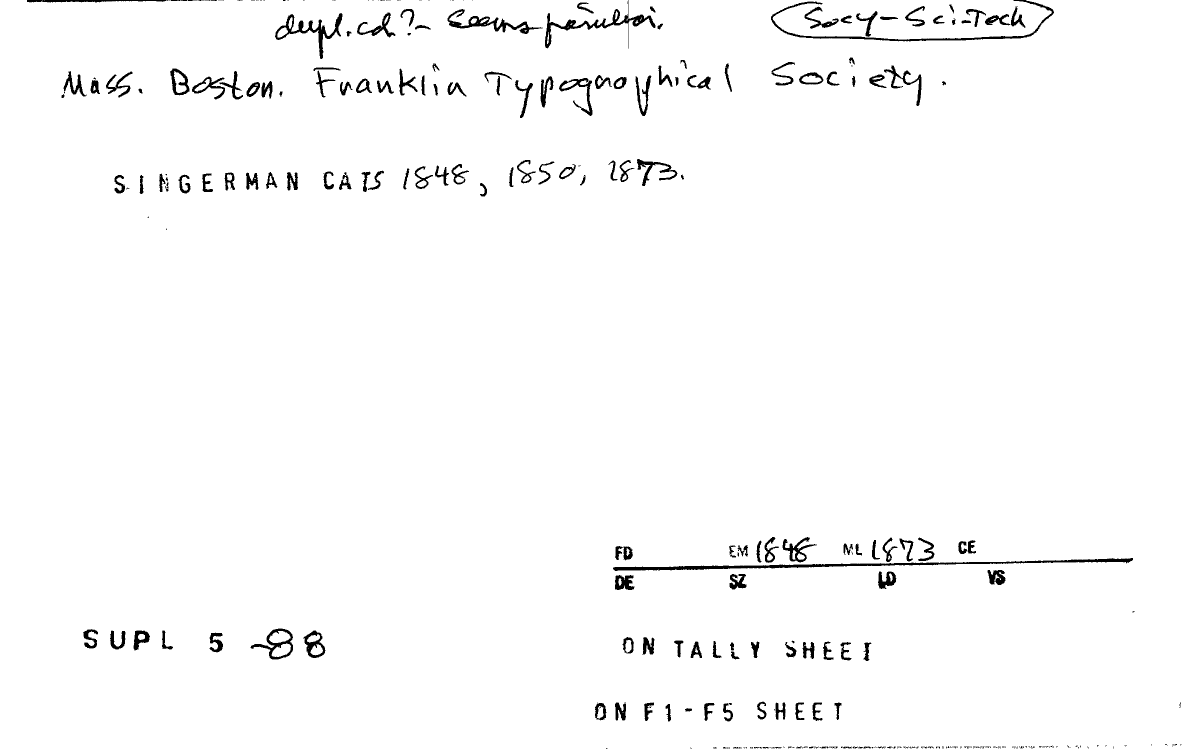 dupl. cd.? - Seems peculiar. Socy-Sci-Tech
Mass. Boston. Franklin Typographical Society.
SINGERMAN CATS 1848, 1850, 1873.
FD EM 1848 ML 1873 CE
DE SZ LD VS
SUPL 5 -88
ON TALLY SHEET
ON F1-F5 SHEET